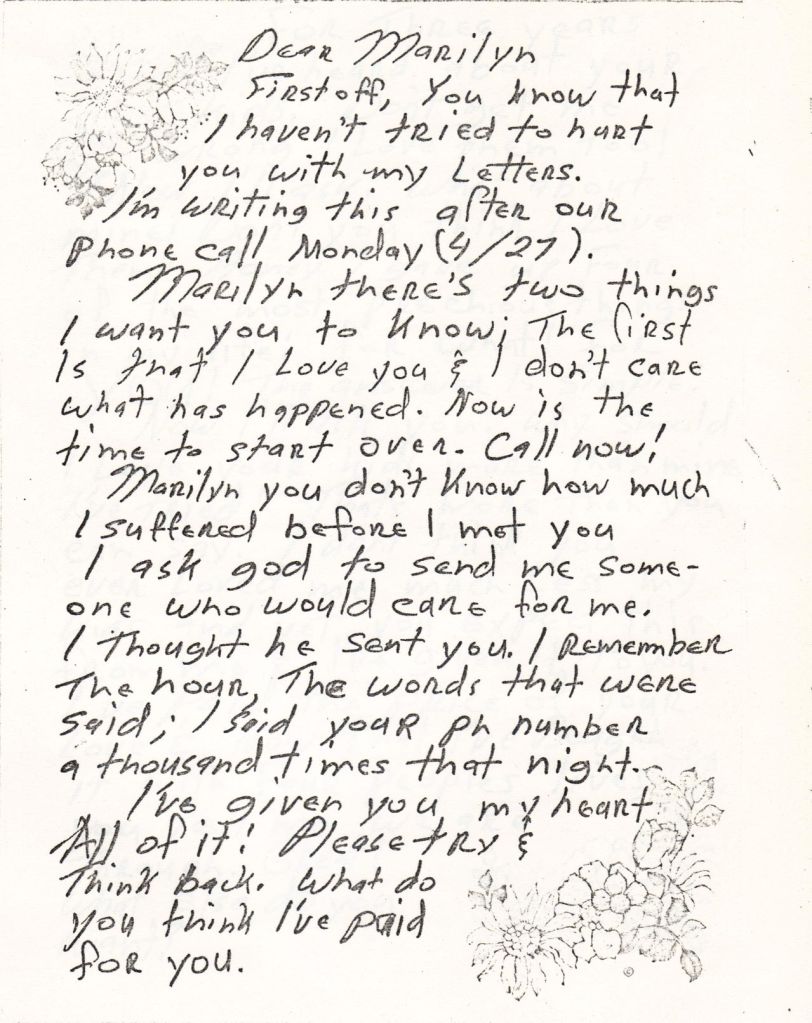 Dear Marilyn
First off, You know that
I haven't tried to hurt
you with my Letters.
I'm writing this after our
Phone call Monday (4/27).
Marilyn there's two things
I want you to Know; The first
Is that I Love you & I don't care
what has happened. Now is the
time to start over. Call now!
Marilyn you don't Know how much
I suffered before I met you
I ask god to send me some-
one who would care for me.
I Thought he sent you. I Remember
The hour, The words that were
said; I said your ph number
a thousand times that night.
I've given you my heart
All of it! Please try &
Think back. What do
you think I've paid
for you.
©